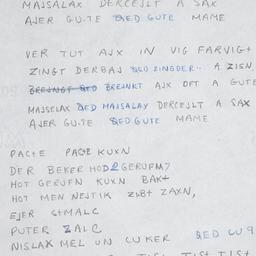 MAJSALAX DERCEJLT A SAX
AJER GU.TE QED GUTE MAME
VER TUT AJX IN VIG FARVIGT
ZINGT DERBAJ QED ZINGDER.. A ZISN,
BREJNGT QED BREJNKT AJX OFT A GUTE
MAJSELAX QED MAJSALAX DERCEJLT A SAX
AJER GU.TE QED GUTE MAME
PACTE PACTE KUXN
DER BEKER HOD GERUFM?
HOT GERUFN KUXN BAKT
HOT MEN NEJTIK ZIBT ZAXN,
EJER SMALC
PUTER ZALC
NISLAX MEL UN CUKER QED CU
TIST TIST